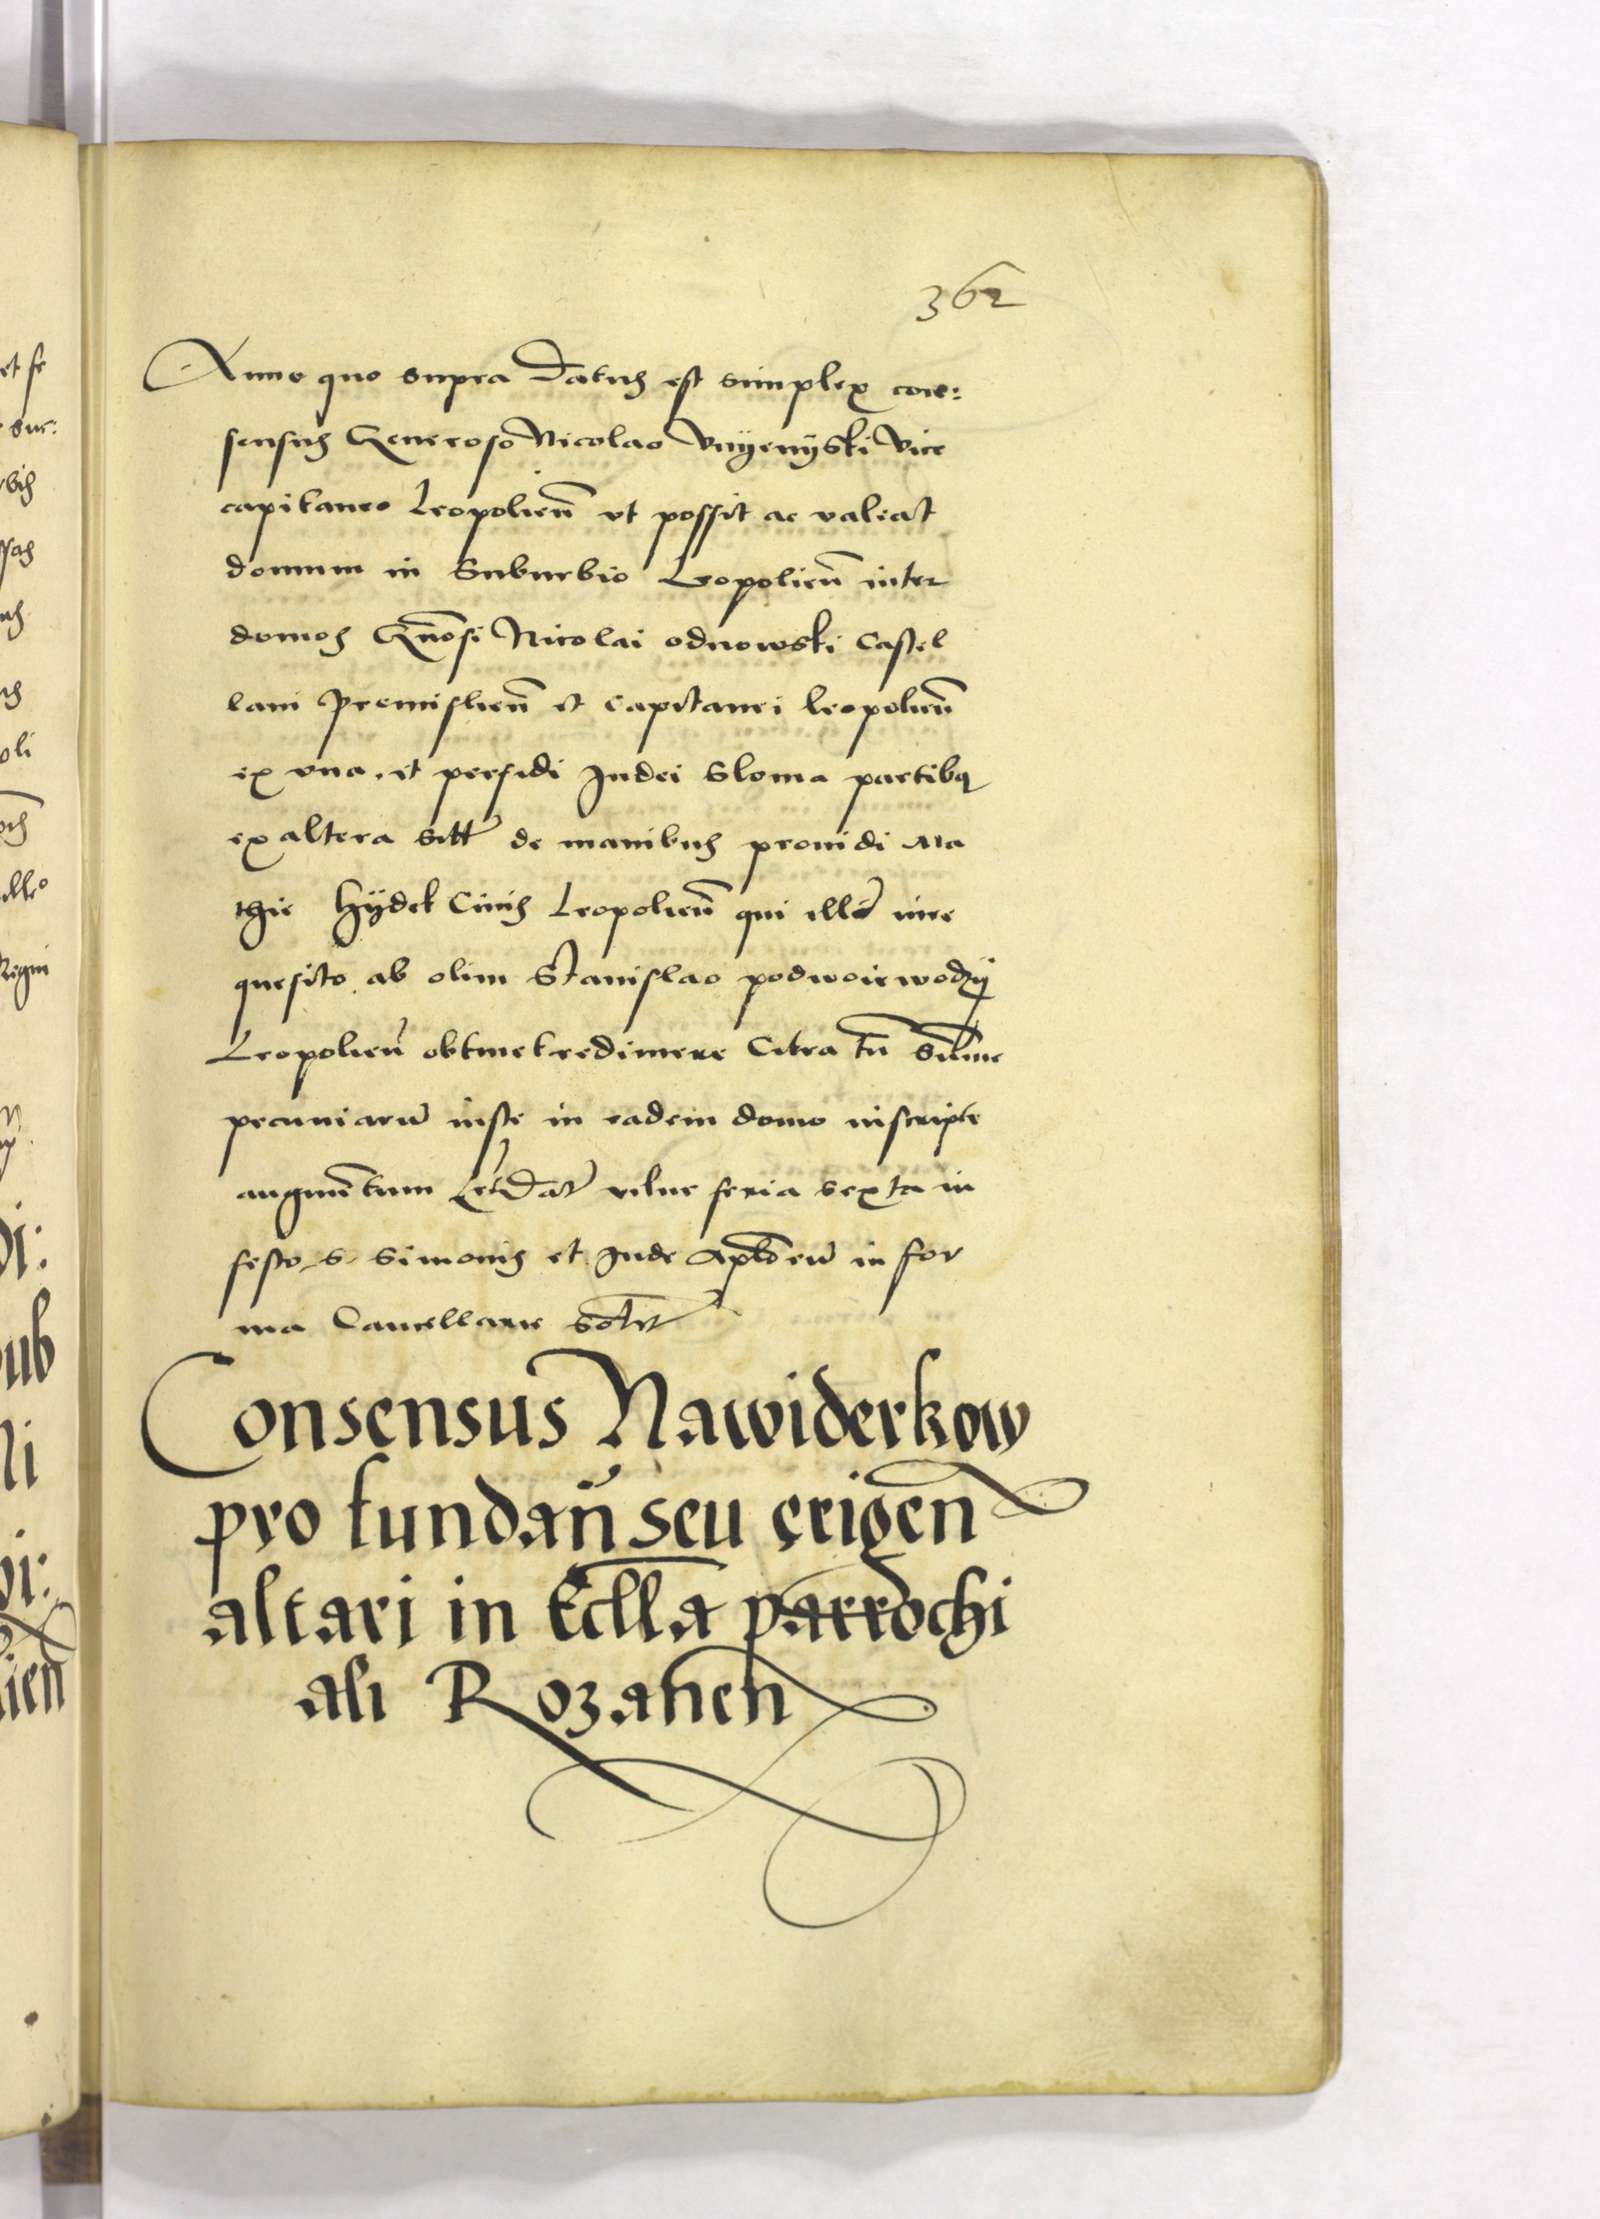 362
Anno quo supra Datus est simplex con:
sensus Generoso Nicolao Vnyenÿski Vice
capitaneo Leopolien̄ vt possit ac valeat
domum in Suburbio Leopolien̄ inter
domos Gn̄osi Nicolai odnowski Castel
lani Premislien̄ et Capitanei leopolien̄
ex vna. et perfidi Iudei Sloma partibq
ex altera sitt de manibus prouidi Ma
thie hÿdek Ciuis Leopolien̄ qui ill iure
quesito ab olim Stanislao podwoiewodzÿ
Leopolien̄ obtinet redimere Citra tn̄ sum̄e
pecuniarū iuste in eadem domo inscripte
augmētum Dat vilne feria sexta in
festo s Simonis et Iude Aplōrū in for
ma Cancellarie
Consensus Nawiderkow
pro fundan̄ seu erigen̄
altari in Eccl̄la parrochi
ali Rozanen̄
et se
sur:
oli
Regni
di:
ub
ni